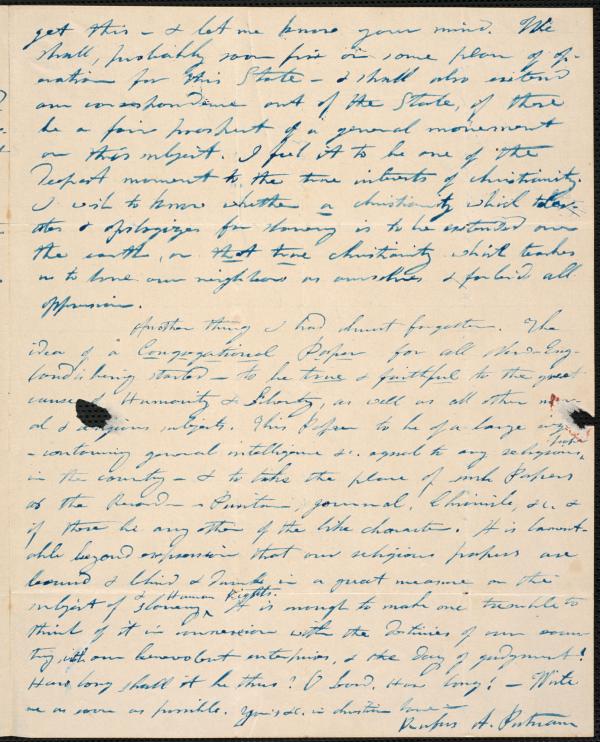 get this - & let me know your mind. We
shall, probably soon fix on some plan of op-
eration for this State - & shall also extend
our correspondence out of the State, if there
be a fair prospect of a general movement
on this subject. I feel it to be one of the
deepest moment to the true interests of christianity.
I wish to know whether a christianity which toler-
ates & apologizes for slavery is to be extended over
the earth, or that true christianity which teaches
us to love our neighbors as ourselves & forbid all
oppression.
Another thing I had almost forgotten. The
idea of a Congregational Paper for all New-Eng-
land's being started - to be true & faithful to the great
cause of Humanity & Liberty, as well as all other mor-
al & religious subjects. This Paper to be of a large
- containing general intelligence &c. equal to any religious
Paper
in the country - & to take the place of such Papers
as the Recorder - Puritan, Journal, Chronicle, &c. &
if there be any other of the like character. It is lament-
able beyond expression that our religious papers are
bound & blind & dumb in a great measure on the
& Human Rights.
subject of slavery ^ It is enough to make one tremble to
think of it in connexion with the destinies of our coun-
try, with our benevolent enterprises, & the day of judgment!
How long shall it be thus? O Lord, How long! - Write
me as soon as possible. Yours &c. in christian love -
Rufus A. Putnam